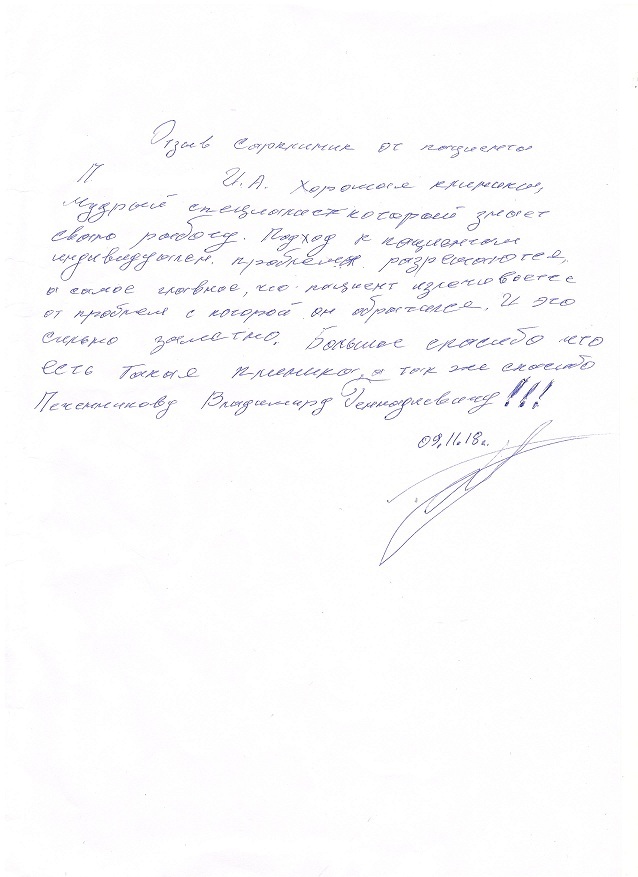 Отзыв Сарклиник от пациента
П И.А. Хорошая клиника,
мудрый специалист который знает
свою работу. Подход к пациентам
индивидуален. проблемы разрешаются,
а самое главное, что пациент излечивается
от проблем с которой он обратился. И это
сильно заметно. Большое спасибо что
есть такая клиника, а так же спасибо
Владимиру Геннадиевичу!!!
09.11.18г.